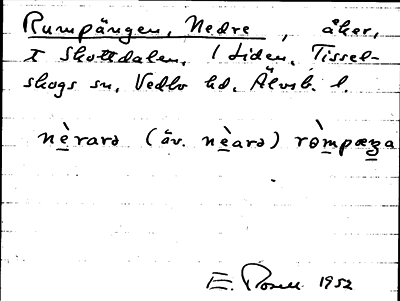 Rumpängen, Nedre, åker,
t Skottdalen, 1 Liden, Tissel-
skogs sn, Vedbo hd, Älvsb. l.
nè̱rarə (äv. nè̱arə) rò̱mpæŋa
E. Rosell 1952